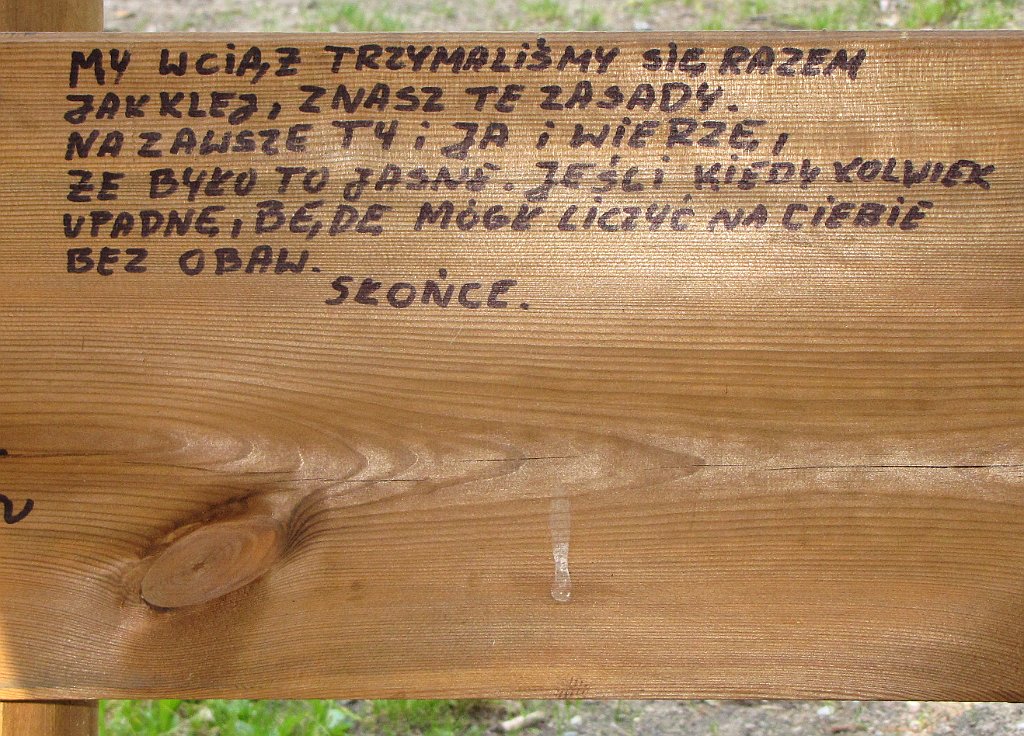 MY WCIĄŻ TRZYMALIŚMY SIĘ RAZEM
JAK KLEJ, ZNASZ TE ZASADY.
NA ZAWSZE TY i JA i WIERZĘ,
ŻE BYŁO TO JASNE. JEŚLi KIEDYKOLWIEK
UPADNĘ, BĘDĘ MÓGŁ LICZYĆ NA CIEBIE
BEZ OBAW.
SŁOŃCE.